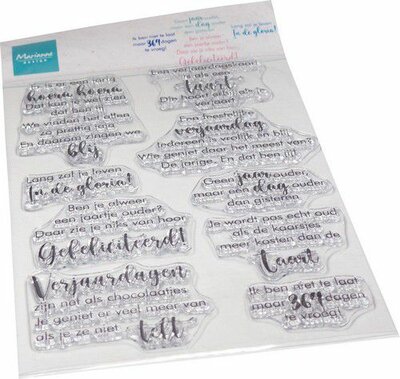 Marianne
DESIGN
jaar
dag
Ik ben niet te laat
maar 364 dagen
te vroeg!
Lang zal je leven
In de gloria!
Gefeliciteerd!
Er is er een jarig
hoera hoera
Dat kan je wel zien
dat ben jij
We vinden het allen
zo prettig
En daarom zingen we
blij
Een verjaardagskaart
is als een
taart
Die hoort
verjaart
Een
verjaardag
Iedereen is vrolijk en blij
Wie geniet daar het meest van?
De jarige. En dat ben jij!
Lang zal je leven
In de gloria!
Geen jaar ouder,
maar een dag ouder
dan gisteren
Ben je alweer
een jaartje ouder?
Daar zie je niks van hoor
Gefeliciteerd!
Je wordt pas echt oud
als de kaarsjes
meer kosten dan de
taart
Verjaardagen
zijn net als chocolaatjes
Je geniet er veel meer van
als je ze niet
telt
Ik ben niet te laat
maar 364 dagen
te vroeg!